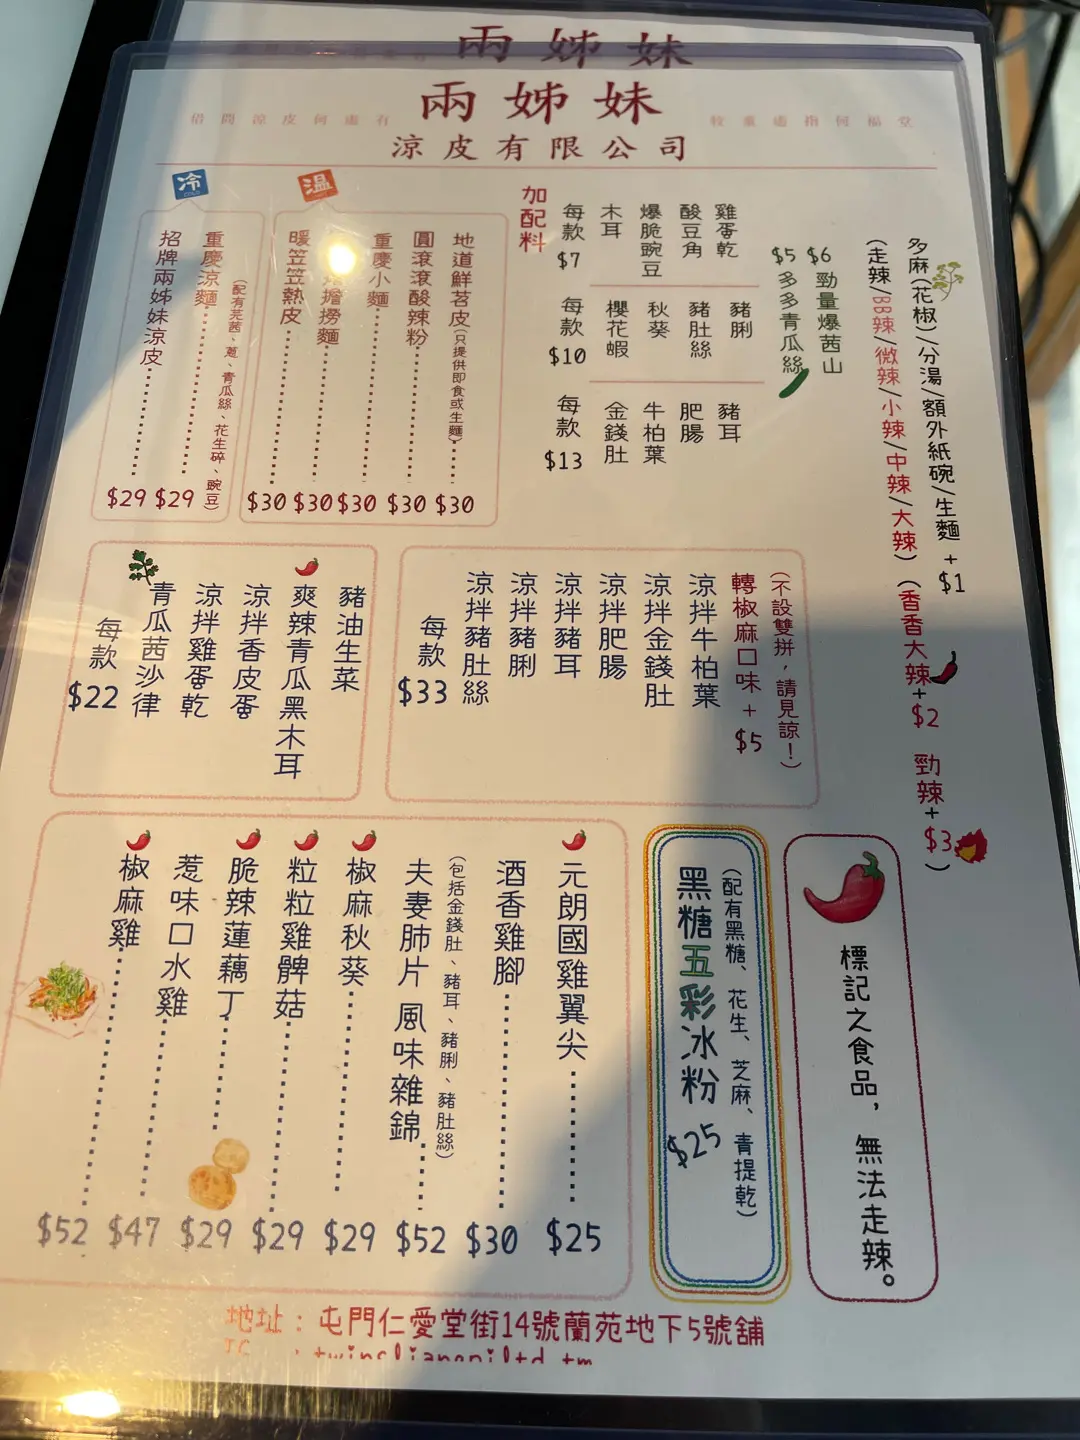 兩姊妹
兩姊妹
借問涼皮何處有
牧童遙指何福堂
涼皮有限公司
多麻(花椒)/分湯/額外紙碗/生麵+$1
(走辣/BB辣/微辣/小辣/中辣/大辣)(香香大辣+$2 勁辣+$3)
$6 勁量爆茜山
$5 多多青瓜絲
加配料
每款$7
雞蛋乾
酸豆角
爆脆豌豆
木耳
每款$10
豬脷
豬肚絲
秋葵
櫻花蝦
每款$13
豬耳
肥腸
牛柏葉
金錢肚
溫
地道鮮苕皮(只提供即食或生麵)$30
圓滾滾酸辣粉$30
重慶小麵$30
擔撈麵$30
暖笠笠熱皮$30
冷
(配有芫茜、蔥、青瓜絲、花生碎、豌豆)
重慶涼麵$29
招牌兩姊妹涼皮$29
(不設雙拼,請見諒!)
轉椒麻口味+$5
涼拌牛柏葉
涼拌金錢肚
涼拌肥腸
涼拌豬耳
涼拌豬脷
涼拌豬肚絲
每款$33
豬油生菜
爽辣青瓜黑木耳
涼拌香皮蛋
涼拌雞蛋乾
青瓜茜沙律
每款$22
標記之食品,無法走辣。
(配有黑糖、花生、芝麻、青提乾)
黑糖五彩冰粉$25
元朗國雞翼尖$25
酒香雞腳$30
(包括金錢肚、豬耳、豬脷、豬肚絲)
夫妻肺片 風味雜錦$52
椒麻秋葵$29
粒粒雞髀菇$29
脆辣蓮藕丁$29
惹味口水雞$47
椒麻雞$52
地址:屯門仁愛堂街14號蘭苑地下5號舖
IG:twinsliangpiltd.tm